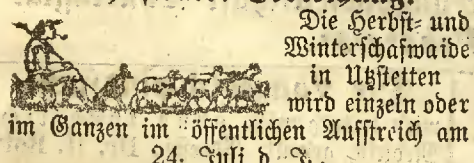 Die Herbst- und
Winterschafwaide
in Utzstetten
wird einzeln oder
im Ganzen im öffentlichen Aufstreich am
24. Juli d. J.